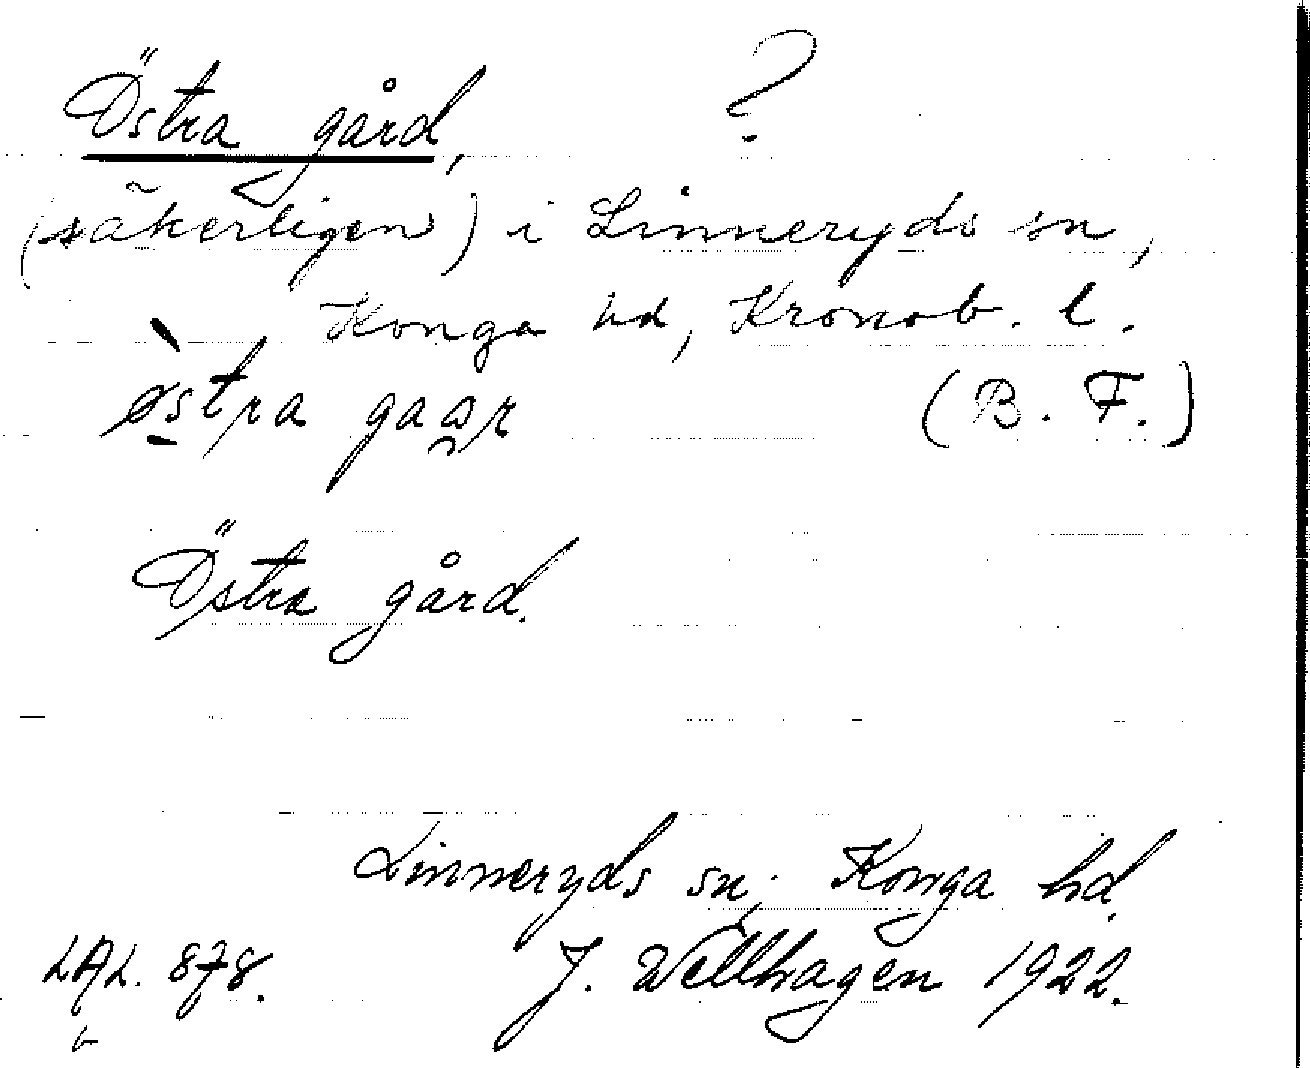 Östra gård, ?
(säkerligen) i Linneryds sn,
Konga hd, Kronob. l.
østra gaar (B. F.)
Östra gård.
Linneryds sn; Konga hd.
LAL. 878. J. Wellhagen 1922.